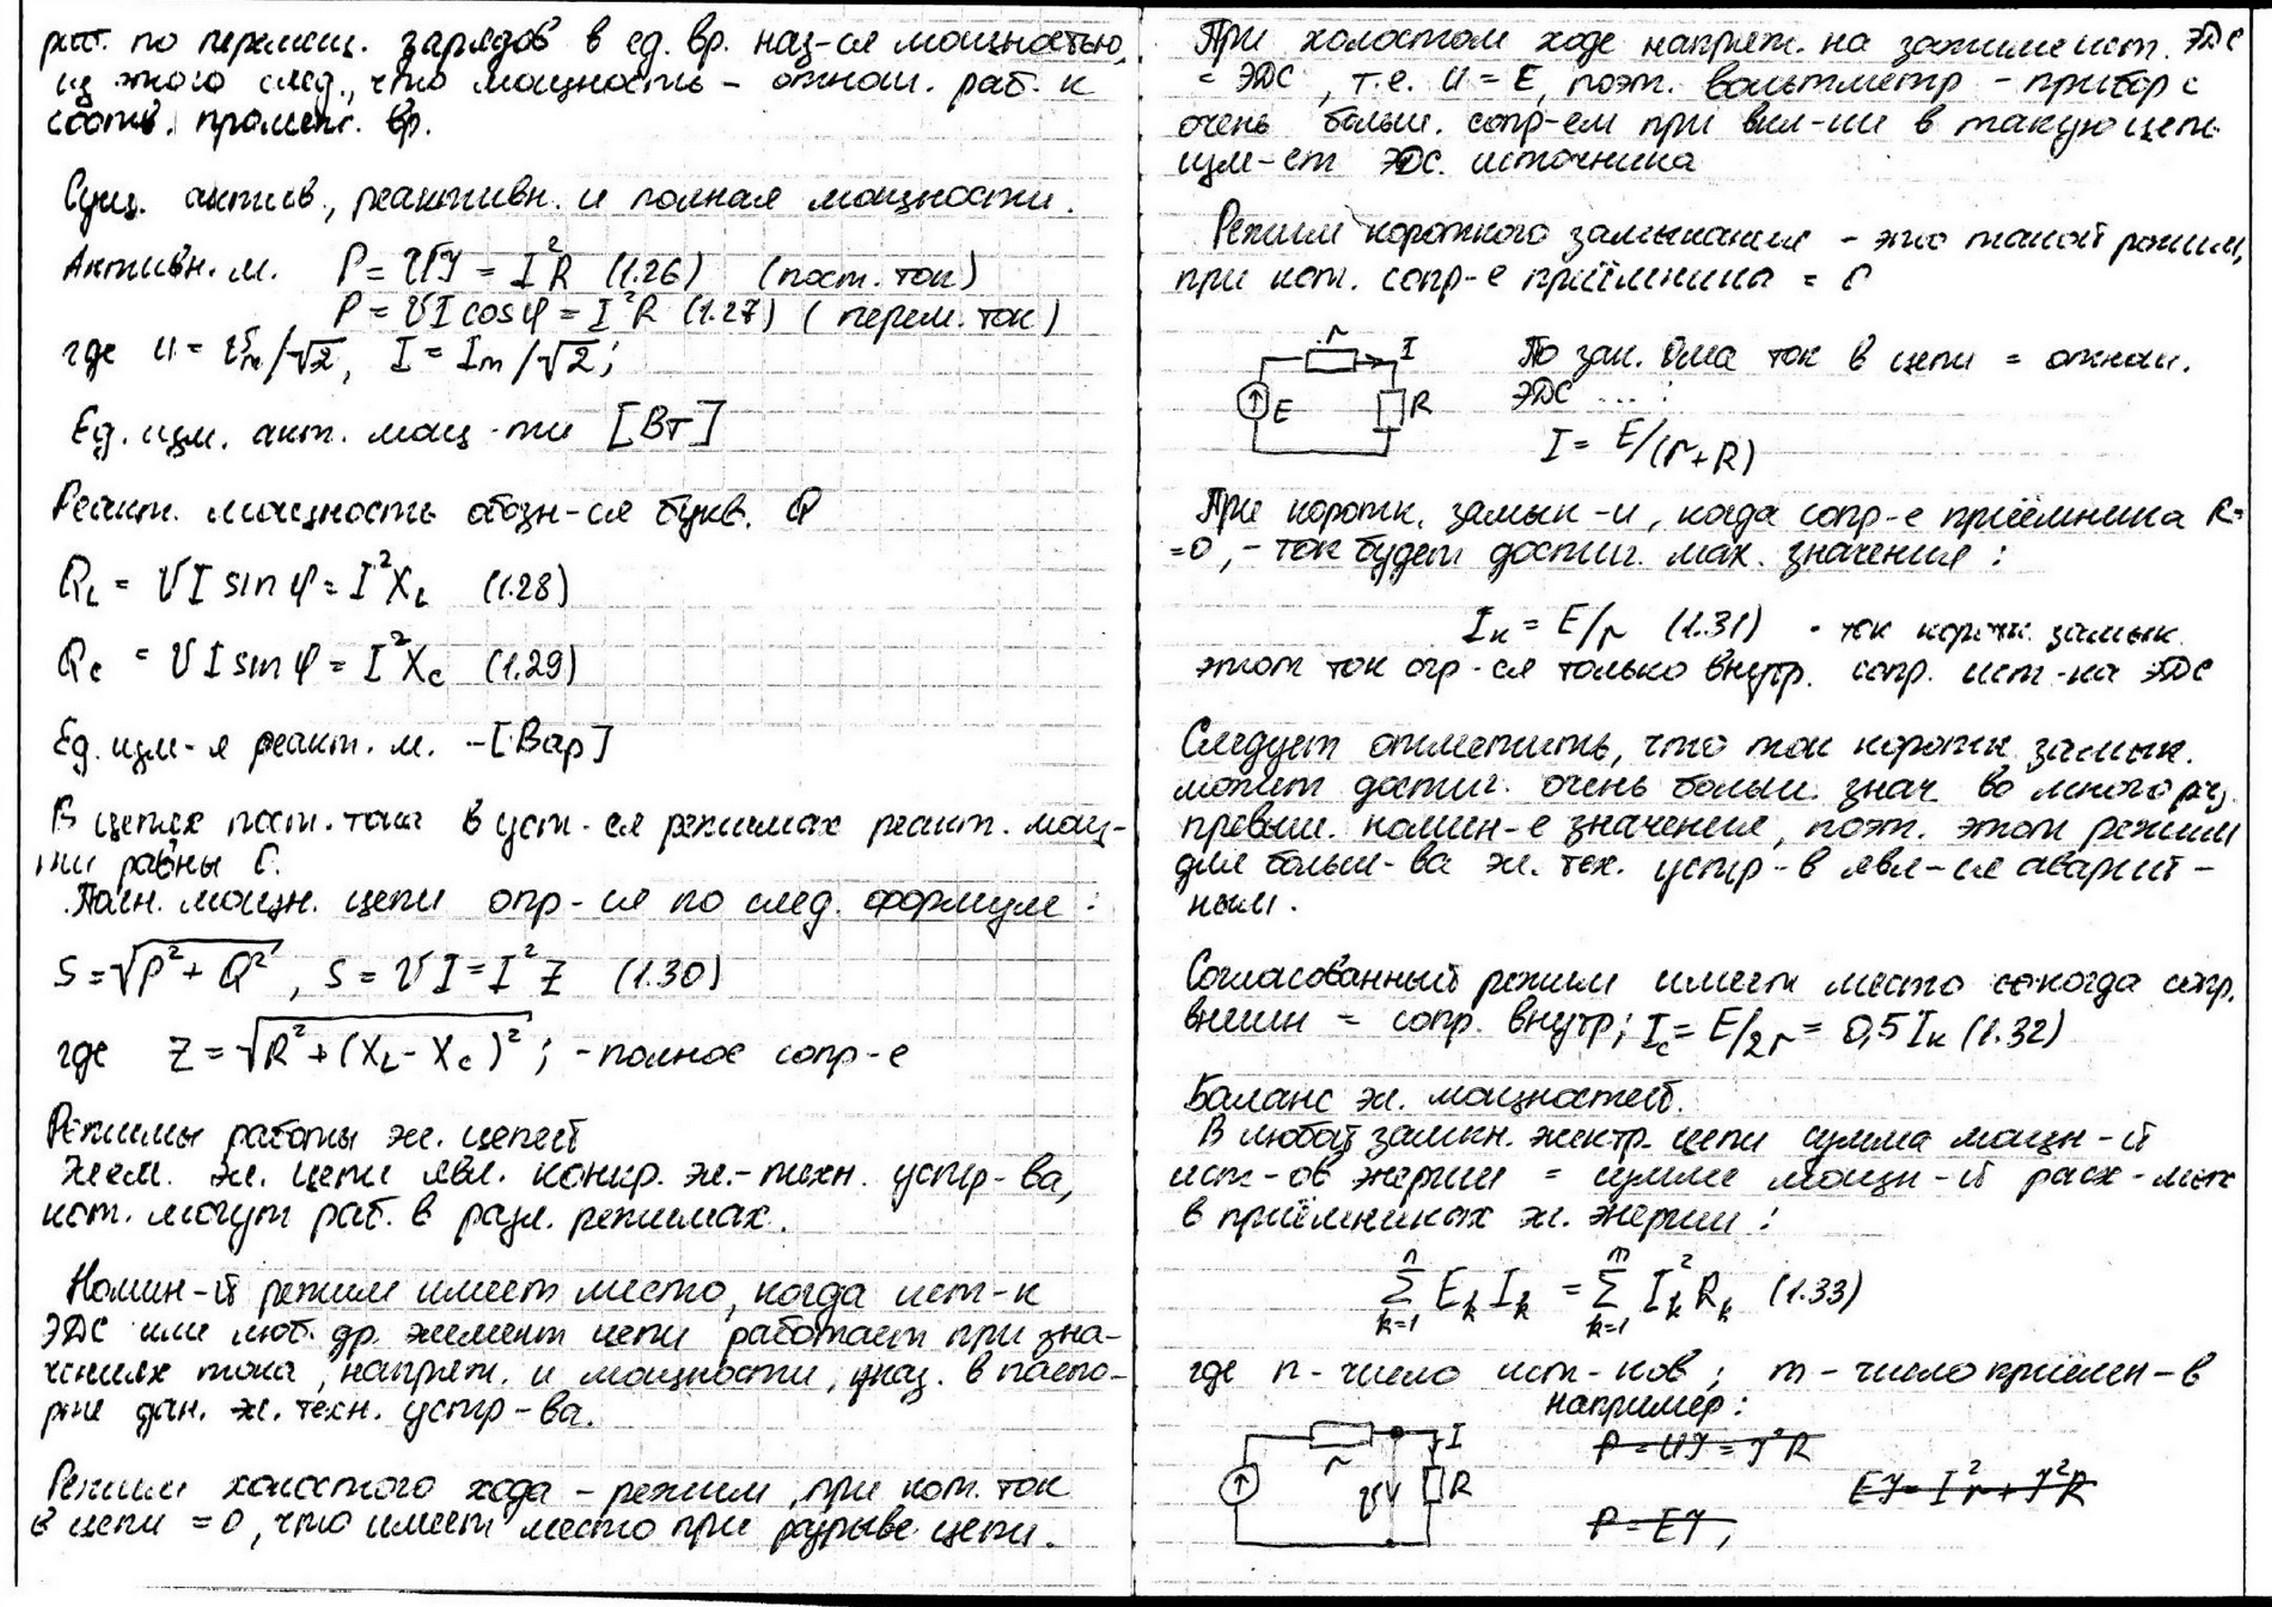 раб. по перемещ. зарядов в ед. вр. наз-ся мощностью,
из этого след., что мощность – отнош. раб. к
соотв. промеж. вр.
Сущ. актив., реактивн. и полная мощности.
Активн. м. P = UI = I²R (1.26) (пост. ток)
P = UI cos φ = I²R (1.27) (перем. ток)
где U = Um/√2, I = Im/√2;
Ед. изм. акт. мощ-ти [Вт]
Реакт. мощность обозн-ся букв. Q
QL = UI sin φ = I²XL (1.28)
QC = UI sin φ = I²XC (1.29)
Ед. изм-я реакт. м. – [Вар]
В цепях пост. тока в уст-ся режимах реакт. мощ-
ти равны 0.
Полн. мощн. цепи опр-ся по след. формуле:
S = √(P² + Q²), S = UI = I²Z (1.30)
где Z = √(R² + (XL – XC)²); – полное сопр-е
Режимы работы эл. цепей
Элем. эл. цепи явл. конкр. эл.-техн. устр-ва,
кот. могут раб. в разл. режимах.
Номин-й режим имеет место, когда ист-к
ЭДС или люб. др. элемент цепи работает при зна-
чениях тока, напряж. и мощности, указ. в паспо-
рте дан. эл. техн. устр-ва.
Режим холостого хода – режим, при кот. ток
в цепи = 0, что имеет место при разрыве цепи.
При холостом ходе напряж. на зажиме ист. ЭДС
= ЭДС, т.е. U = E, поэт. вольтметр – прибор с
очень больш. сопр-ем при вкл-ии в такую цепь
изм-ет ЭДС. источника
Режим короткого замыкания – это такой режим,
при кот. сопр-е приёмника = 0
r I
E R
По зак. Ома ток в цепи = отнош.
ЭДС ... :
I = E/(r+R)
При коротк. замык-и, когда сопр-е приёмника R=
=0, – ток будет достиг. мах. значения:
Iк = E/r (1.31) - ток коротк. замык.
этот ток огр-ся только внутр. сопр. ист-ка ЭДС
Следует отметить, что ток коротк. замык.
может достиг. очень больш. знач во много раз.
превыш. номин-е значения, поэт. этот режим
для больш-ва эл. тех. устр-в явл-ся аварий-
ным.
Согласованный режим имеет место когда сопр.
внешн = сопр. внутр; Ic = E/2r = 0,5 Iк (1.32)
Баланс эл. мощностей.
В любой замкн. электр. цепи сумма мощн-й
ист-ов энергии = сумме мощн-й расх-мых
в приёмниках эл. энергии:
∑ₖ₌₁ⁿ EₖIₖ = ∑ₖ₌₁ᵐ Iₖ²Rₖ (1.33)
где n - число ист-ков; m – число приёмн-в
например:
r I
U R
P = UI = I²R
EI = I²r + I²R
P = EI,